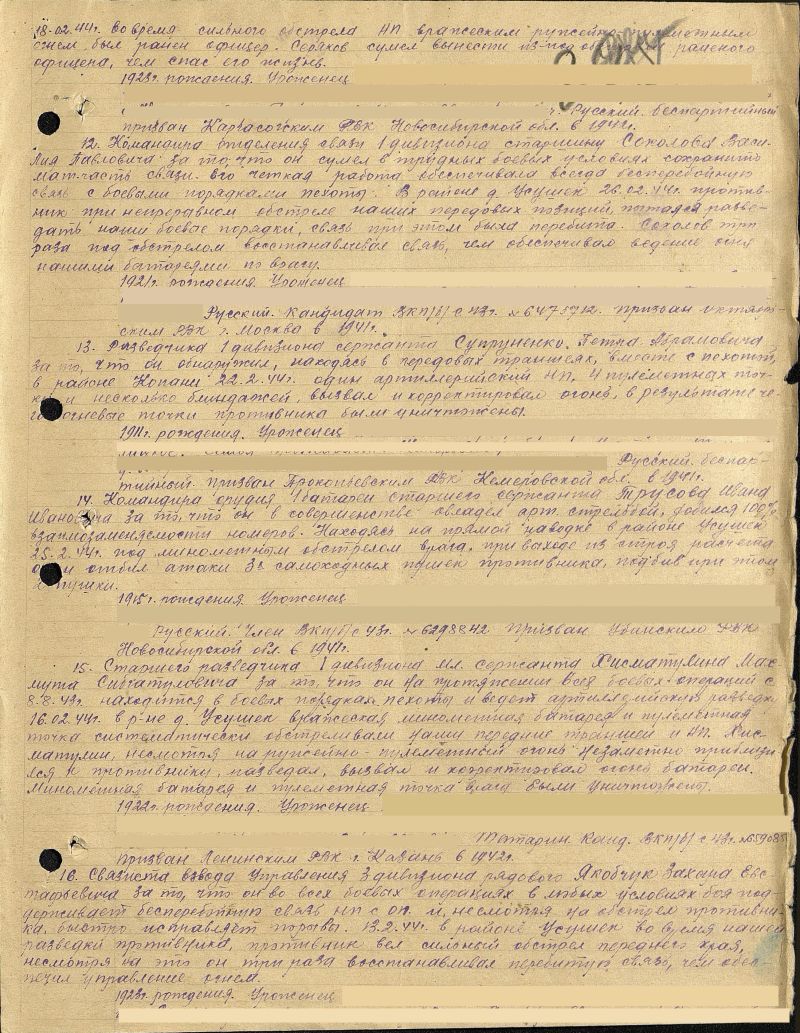 18.02.44г. Во время сильного обстрела НП вражеским ружейно-пулеметным
огнем был ранен офицер. Серяков сумел вынести из-под обстрела раненого
офицера, чем спас его жизнь.
1923г. рождения. Уроженец
Русский. беспартийный
призван Каргасокским РВК Новосибирской обл. в 1941г.
12. Командира отделения связи 1 дивизиона старшину Соколова Васи-
лия Павловича за то, что он сумел в трудных боевых условиях сохранить
мат.часть связи. Его четкая работа обеспечивала всегда бесперебойную
связь с боевыми порядками пехоты. В районе д. Усушек 26.02.44г. против-
ник при непрерывном обстреле наших передовых позиций, пытался разве-
дать наши боевые порядки, связь при этом была перебита. Соколов три
раза под обстрелом восстанавливал связь, чем обеспечивал ведение огня
нашими батареями по врагу.
1921г. рождения Уроженец
Русский. Кандидат ВКП/б/ с 43г. №6475712. Призван Октябрь-
ским РВК г. Москва в 1941г.
13. Разведчика 1 дивизиона сержанта Супруненко Петра Абрамовича
за то, что он обнаружил, находясь в передовых траншеях, вместе с пехотой,
в районе Копани 22.2.44г. один артиллерийский НП, 4 пулеметных точ-
ки и несколько блиндажей, вызвал и корректировал огонь, в результате че-
го огневые точки противника были уничтожены.
1911г. рождения. Уроженец
Русский. беспар-
тийный. призван Прокопьевским РВК Кемеровской обл. в 1941г.
14. Командира орудия 1 батареи старшего сержанта Трусова Ивана
Ивановича за то, что он в совершенстве овладел арт. стрельбой, добился 100%
взаимозаменяемости номеров. Находясь на прямой наводке в районе Усушек
25.2.44г. под минометным обстрелом врага, при выходе из строя расчета
отбил атаки 3х самоходных пушек противника, подбив при этом
пушки.
1915г. рождения. Уроженец
Русский. Член ВКП/б/ с 43г. №6298842 Призван Убинским РВК
Новосибирской обл. в 1941г.
15. Старшего разведчика 1 дивизиона мл. сержанта Хисматулина Мах-
мута Сибгатуловича за то, что он на протяжении всех боевых операций с
8.8.43г. находится в боевых порядках пехоты и ведет артиллерийскую разведку
16.02.44г. в р-не д. Усушек вражеская минометная батарея и пулеметная
точка систематически обстреливали наши передние траншеи и НП. Хис-
матулин, несмотря на ружейно-пулеметный огонь незаметно приблизи-
лся к противнику, разведал, вызвал и корректировал огонь батареи.
Минометная батарея и пулеметная точка врага были уничтожены.
1922г. рождения. Уроженец
Татарин Канд. ВКП/б/ с 43г.
Призван Ленинским РВК г. Казань в 1942г.
16. Связиста взвода управления 3 дивизиона рядового Якобчук Захара Евс-
тафьевича за то, что он во всех боевых операциях в любых условиях боя под-
держивает бесперебойную связь НП с ОП. и, несмотря на обстрел противни-
ка, быстро исправляет порывы. 13.2.44г. в районе Усушек во время нашей
разведки противника, противник вел сильный обстрел переднего края,
несмотря на это он три раза восстанавливал перебитую связь, чем обес-
печил управление огнем.
1923г. рождения. Уроженец